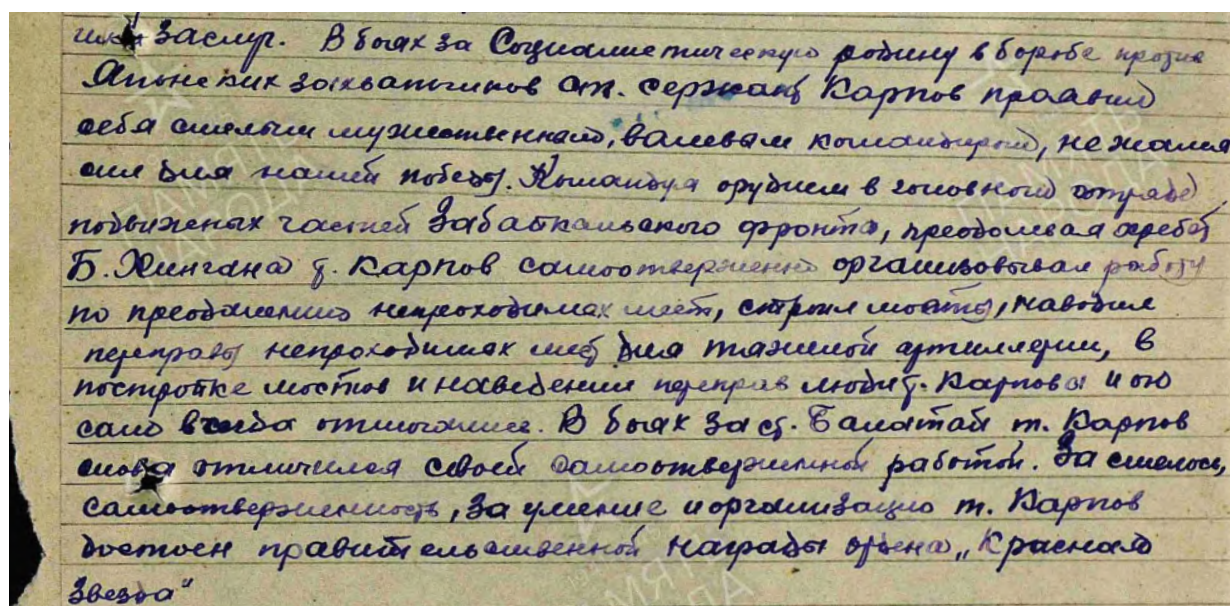 заслуг. В боях за Социалистическую родину в борьбе против
Японских захватчиков ст. сержант Карпов проявил
себя смелым мужественным, волевым командиром, не жалея
сил для нашей победы. Командуя орудием в головном отряде
подвиженых частей Забайкальского фронта, преодолевая хребет
Б. Хингана т. Карпов самоотверженно организовывал работу
по преодолению непроходимых мест, строил мосты, наводил
переправы непроходимых мест для тяжелой артиллерии, в
постройке мостов и наведении переправ люди т. Карпова и он
сам всегда отличались. В боях за ст. Балатай т. Карпов
снова отличился своей самоотверженной работой. За смелость,
самоотверженность, за умение и организацию т. Карпов
достоен правительственной награды ордена „Красная
Звезда"
ПАМЯТЬ
НАРОДА